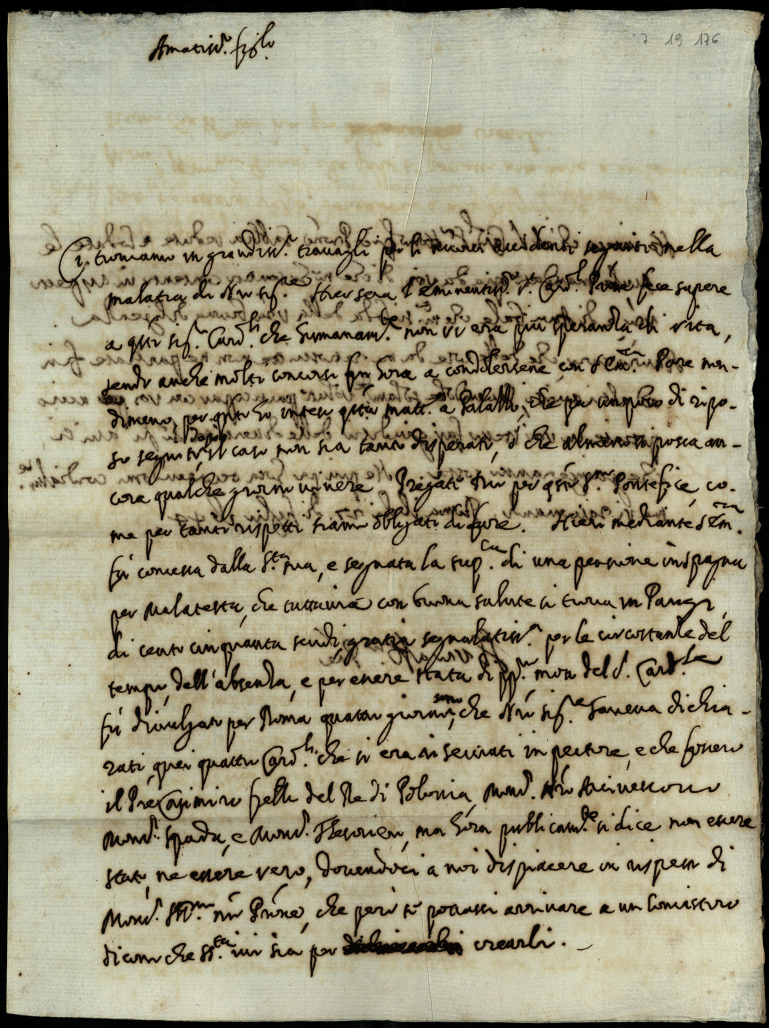 7 19 176
Amatiss.º figlo
Ci troviamo in grandiss.i travagli per li accidenti seguiti nella
malatia di Nro Sig.re Hier sera l'Eminentiss.º S.r Card.l fece sapere
a q'sti sig.ri Card.li che humanam.te non vi era più speranza di vita,
essendo anche molti concorsi fin hora a condolersene con S. Em.za Pare non-
dimeno, per q'nto ho inteso q'sta matt.a a Palazzo, che per un poco di ripo-
so seguito, il caso non sia tanto disperato, o che almeno possa an-
cora qualche giorno vivere. Pregate Dio per q'sto S.mo Pontefice, co-
me per tanti rispetti siamo obligati di fare. Hieri mediante S. Em.za
fu concessa dalla S.tà sua, e segnata la sup.ca di una pensione in Spagna
per Malatesta, che tuttavia con buona salute si trova in Parigi,
di cento cinquanta scudi, gratia segnalatiss.a per le circostanze del
tempo, dell'absenza, e per essere stata di pp.º mon del S. Card.le
fu divulgato per Roma quattro giorni sono, che Nro Sig.re haveva dichia-
rati, quei quattro Card.li che si era riservati in pectore, e che fossero
il Pre Casimiro fr'ello del Re di Polonia, Mons.r Nro Arcivescovo
Mons.r Spada, e Mons.r Thesoriero, ma hora publicam.te si dice non essere
stato, ne essere vero, dovendoci a noi dispiacere in rispetto di
Mons.r Ill.mo nro Pr'one, che però se potrassi arrivare a un Concistoro
dicono che S. S.tà sia per crearli.